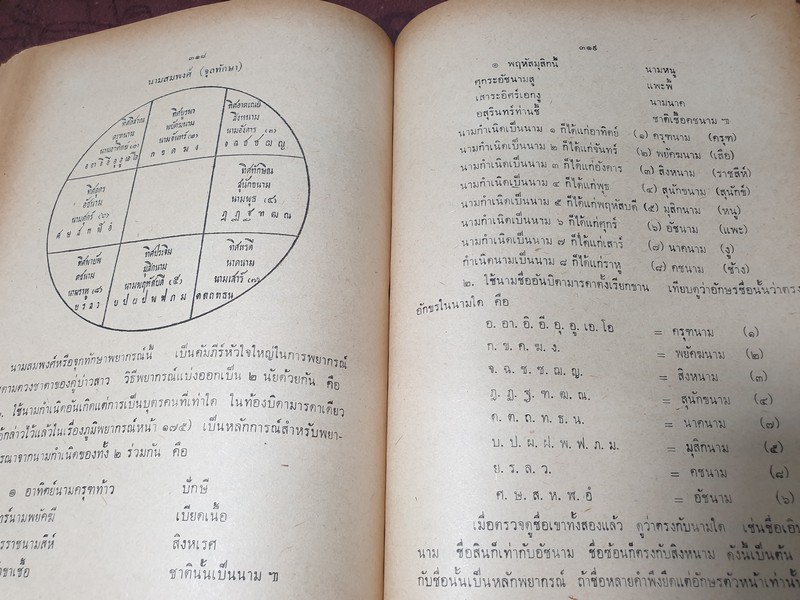 ๓๑๘
นามสมพงศ์ (จุลทักษา)
ทิศอีสาน
ครุฑนาม
นามอาทิตย์ (๑)
ทิศบูรพา
พยัคฆนาม
นามจันทร์ (๒)
ก ข ค ฆ ง
ทิศอาคเณย์
สิงหนาม
นามอังคาร (๓)
จ ฉ ช ซ ฌ ญ
ทิศอุดร
อัชนาม
นามศุกร์ (๖)
ทิศทักษิณ
สุนักขนาม
นามพุธ (๔)
ฎ ฏ ฐ ฑ ฒ ณ
ทิศพายัพ
คชนาม
นามราหู (๘)
ย ร ล ว
ทิศประจิม
มุสิกนาม
นามพฤหัสบดี (๕)
ทิศหรดี
นาคนาม
นามเสาร์ (๗)
ด ต ถ ท ธ น
นามสมพงศ์หรือจุกทักษาพยากรณ์นี้ เป็นคัมภีร์หัวใจใหญ่ในการพยากรณ์
ตามดวงชาตาของคู่บ่าวสาว วิธีพยากรณ์แบ่งออกเป็น ๒ นัยด้วยกัน คือ
ใช้นามกำเนิดอันเกิดแต่การเป็นบุตรคนที่เท่าใด ในท้องบิดามารดาเดียว
กล่าวไว้แล้วในเรื่องภูมิพยากรณ์หน้า ๑๗๕) เป็นหลักการณ์สำหรับพยา-
รณาจากนามกำเนิดของทั้ง ๒ ร่วมกัน คือ
๑ อาทิตย์นามครุฑท้าว ปักษี
ทร์นามพยัคฆี เบียดเนื้อ
รราชนามสีห์ สิงหเรศ
ขาเชื้อ ชาตินั้นเป็นนาม ฯ
๓๑๙
๑ พฤหัสมุสิกนี้ นามหนู
ศุกระอัชนามสู แพะพี้
เสาระอิศร์เอกงู นามนาค
อสุรินทร์ท่านชี้ ชาติเชื้อคชนาม ฯ
นามกำเนิดเป็นนาม ๑ ก็ได้แก่อาทิตย์ (๑) ครุฑนาม (ครุฑ)
นามกำเนิดเป็นนาม ๒ ก็ได้แก่จันทร์ (๒) พยัคฆนาม (เสือ)
นามกำเนิดเป็นนาม ๓ ก็ได้แก่อังคาร (๓) สิงหนาม (ราชสีห์)
นามกำเนิดเป็นนาม ๔ ก็ได้แก่พุธ (๔) สุนักขนาม (สุนักข์)
นามกำเนิดเป็นนาม ๕ ก็ได้แก่พฤหัสบดี (๕) มุสิกนาม (หนู)
นามกำเนิดเป็นนาม ๖ ก็ได้แก่ศุกร์ (๖) อัชนาม (แพะ)
นามกำเนิดเป็นนาม ๗ ก็ได้แก่เสาร์ (๗) นาคนาม (งู)
กำเนิดนามเป็นนาม ๘ ก็ได้แก่ราหู (๘) คชนาม (ช้าง)
๒. ใช้นามชื่ออันบิดามารดาตั้งเรียกขาน เทียบดูว่าอักษรชื่อนั้นว่าตรง
อักขรในนามใด คือ
อ. อา. อิ. อี. อุ. อู. เอ. โอ = ครุฑนาม (๑)
ก. ข. ค. ฆ. ง. = พยัคฆนาม (๒)
จ. ฉ. ช. ซ. ฌ. ญ. = สิงหนาม (๓)
ฎ. ฏ. ฐ. ฑ. ฒ. ณ. = สุนักขนาม (๔)
ด. ต. ถ. ท. ธ. น. = นาคนาม (๗)
บ. ป. ผ. ฝ. พ. ฟ. ภ. ม. = มุสิกนาม (๕)
ย. ร. ล. ว. = คชนาม (๘)
ศ. ษ. ส. ห. ฬ. อํ = อัชนาม (๖)
เมื่อตรวจดูชื่อเขาทั้งสองแล้ว ดูว่าตรงกับนามใด เช่นชื่อเอิบ
นาม ชื่อสินก็เท่ากับอัชนาม ชื่อซ้อนก็ตรงกับสิงหนาม ดังนี้เป็นต้น
กับชื่อนั้นเป็นหลักพยากรณ์ ถ้าชื่อหลายคำพึงยึดแต่อักษรตัวหน้าเท่านั้น